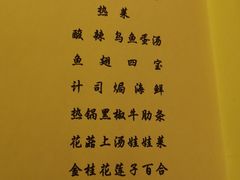 热菜
酸辣乌鱼蛋汤
鱼翅四宝
计司焗海鲜
热锅黑椒牛肋条
花菇上汤娃娃菜
金桂花莲子百合